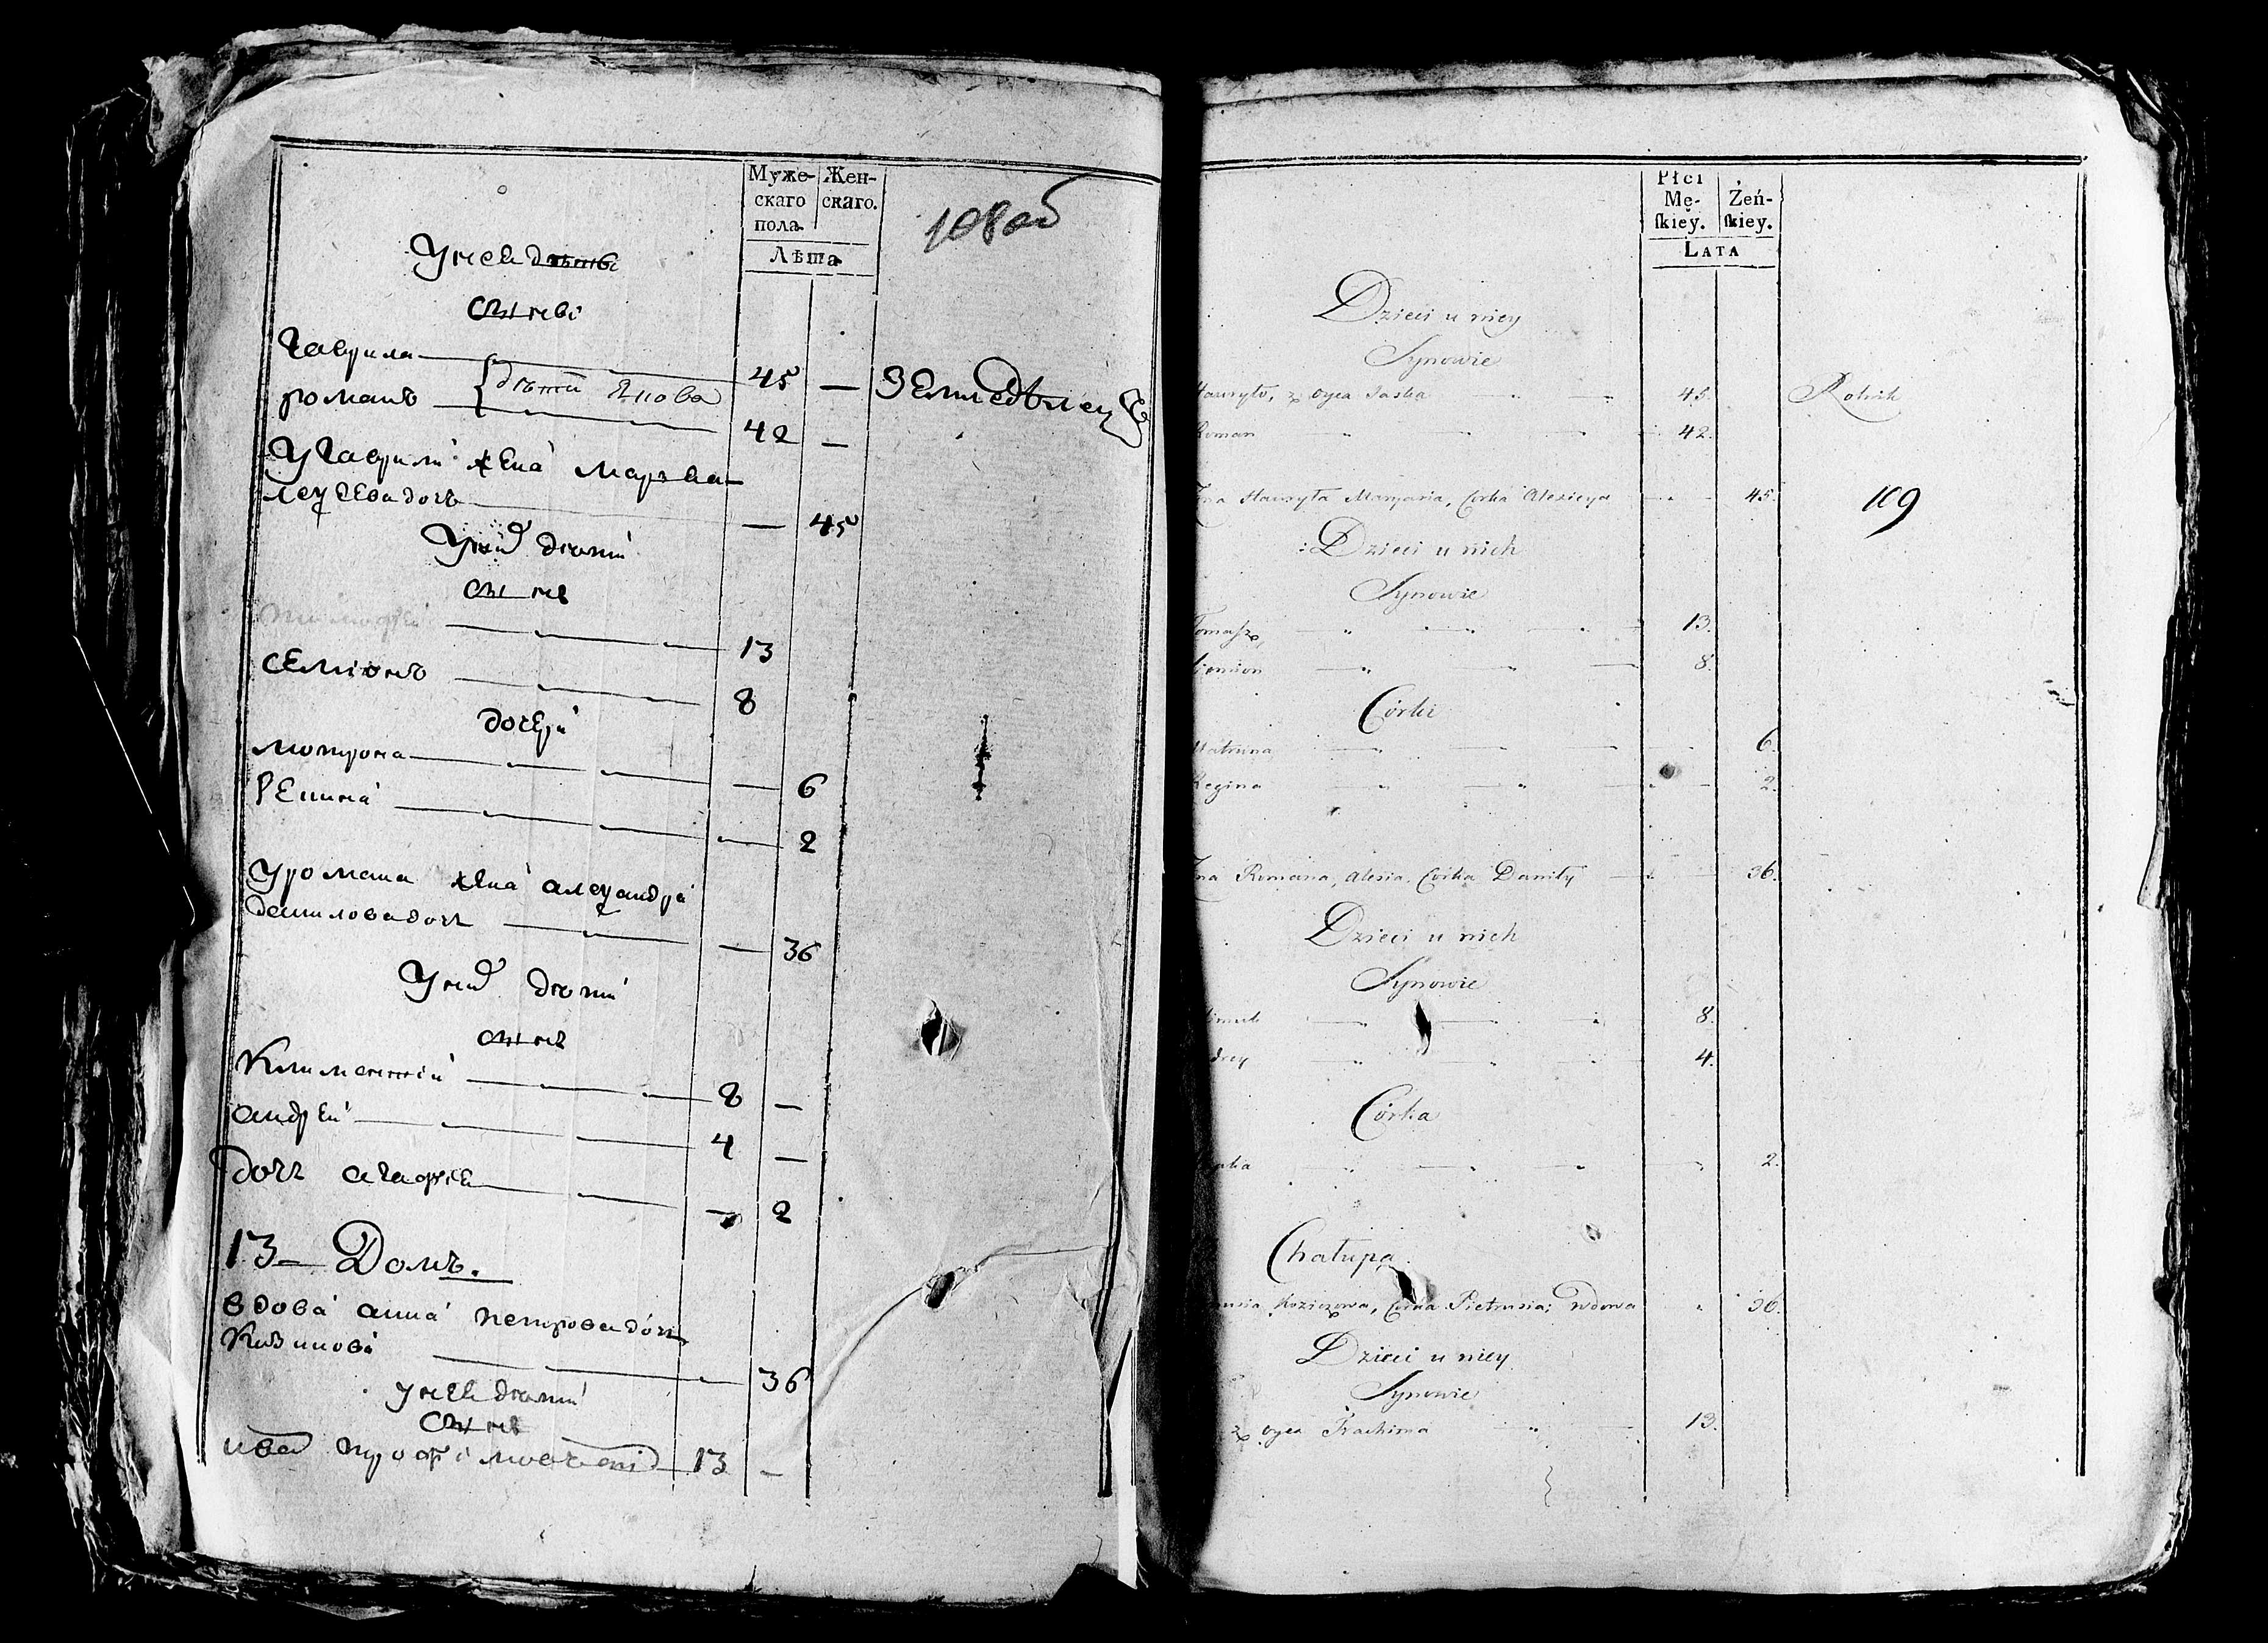 Муже-
скаго
пола
Жен-
скаго.
Лѣта
108 об
У нее дѣти
Сынове
Гаврила 45 —
романъ 42 —
дѣти Янова
Землѣделецъ
У Гаврили жена марья
лецеева дочь — 45
У них дѣти
сынѣ
тимофей 13
семионъ 8
дочери
мотрона — 6
Регина — 2
У романа жена александра
данилова дочь — 36
У них дѣти
сынѣ
Климентий 8 —
андрей 4 —
дочь агафие — 2
13 — Домъ.
вдова анна петрова дочь
36
у нее дѣти
Сынѣ
иван 13 —
Płci
Mę-
ſkiey.
Żeń-
ſkiey.
LATA
Dzieci u niey
Synowie
Hauryło, z oyca Jaska 45. Rolnik
Roman 42.
Żna Hauryła Maryaria, Córka Alexieya 45.
109
Dzieci u nich
Synowie
Tomaſz 13.
Siemion 8.
Córki
Matruna 6.
Regina 2.
Żna Romana, Alesia, Córka Daniły 36.
Dzieci u nich
Synowie
8.
drey 4.
Córka
2.
Chałupa.
Koziczowa, Córka Pietrusia; wdowa 36.
Dzieci u niey
Synowie
z oyca Trachima 13.